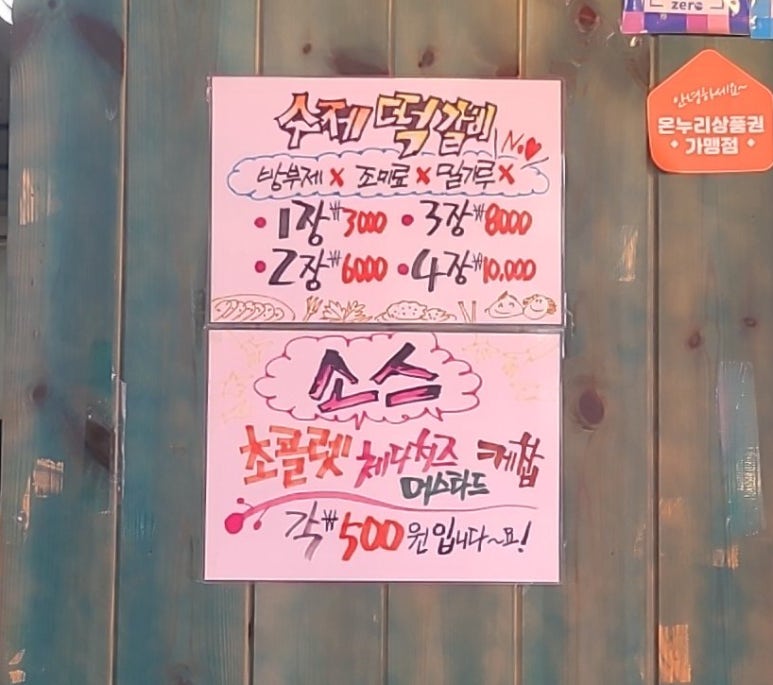 zero
안녕하세요~
온누리상품권
가맹점
수제 떡갈비
No.
방부제 x 조미료 x 밀가루 x
• 1장 ₩3000 • 3장 ₩8000
• 2장 ₩6000 • 4장 ₩10.000
소스
초콜렛 체다치즈 케찹
머스타드
각 ₩500원 입니다~요!